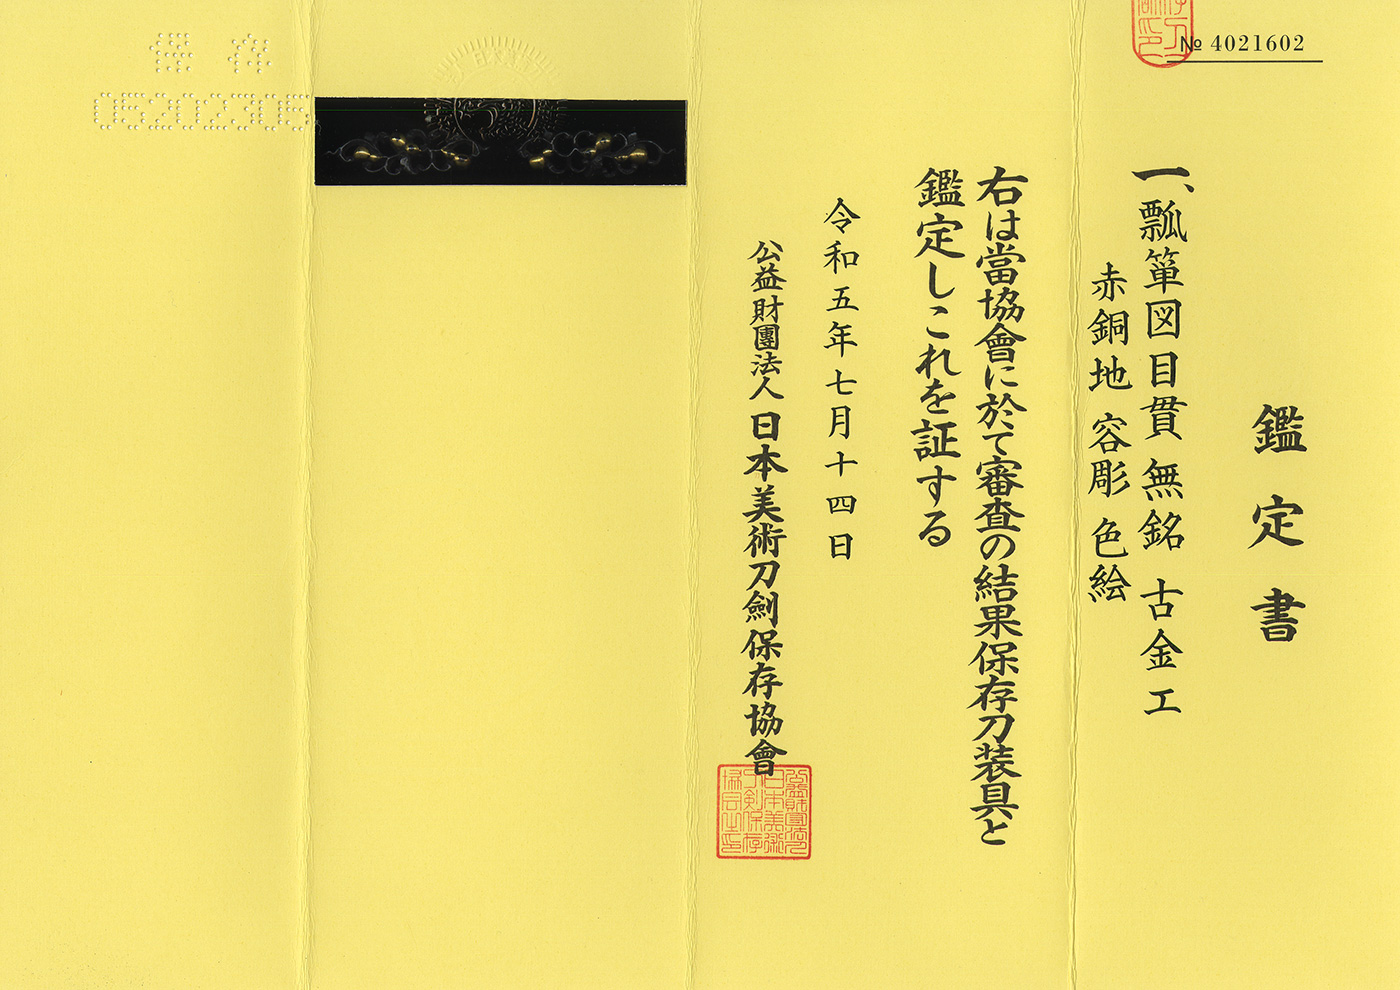 № 4021602
鑑定書
一、瓢箪図目貫 無銘 古金工
赤銅地 容彫 色絵
右は當協會に於て審査の結果保存刀装具と
鑑定しこれを証する
令和五年七月十四日
公益財團法人 日本美術刀劍保存協會
保存
05202305